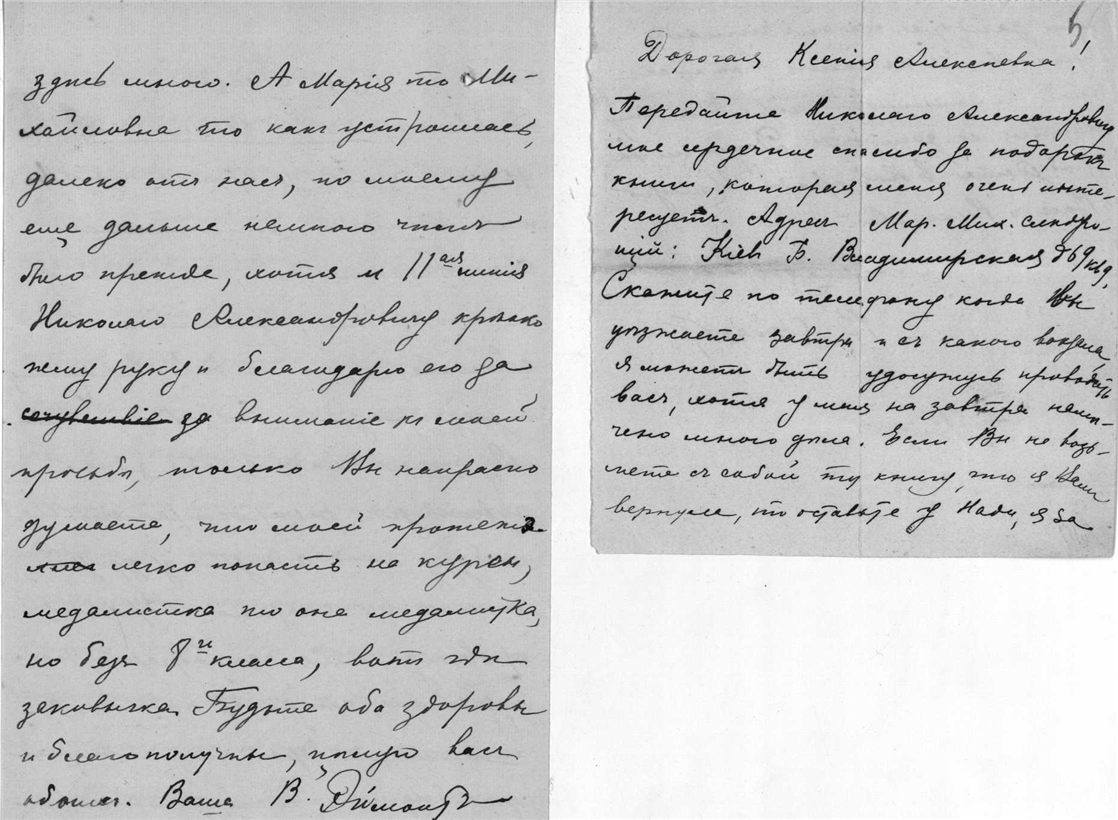 здѣсь много. А Марія то Ми-
хайловна то какъ устроилась,
далеко отъ насъ, по моему
еще дальше немного чѣмъ
было прежде, хотя и 11ая линія
Николаю Александровичу крѣпко
жму руку и благодарю его за
сочувствіе за вниманіе къ моей
просьбѣ, только Вы напрасно
думаете, что моей протеже
легко попасть на курсы,
медалистка то она медалистка,
но безъ 8го класса, вотъ гдѣ
заковычка. Будьте оба здоровы
и благополучны, цѣлую васъ
обоихъ. Ваша В.
5
Дорогая Ксенія Алексѣевна!
Передайте Николаю Александровичу
мое сердечное спасибо за подарокъ
книги, которая меня очень инте-
ресуетъ. Адресъ Мар. Мих.
Кіевъ Б. Владимирская д 69 кв 9,
Скажите по телефону когда Вы
уѣзжаете завтра и съ какого вокзала
я можетъ быть удосужусь проводить
васъ, хотя у меня на завтра намѣ-
чено много дѣла. Если Вы не возь-
мете съ собой ту книгу, что я Вамъ
вернула, то оставьте у Нади, я за